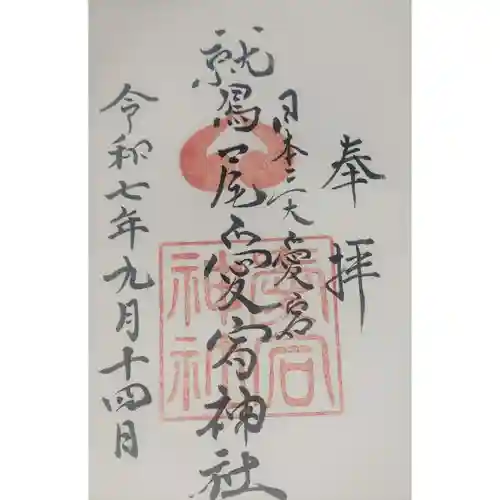 奉拝
日本三大愛宕
鷲尾愛宕神社
令和七年九月十四日
愛宕神社